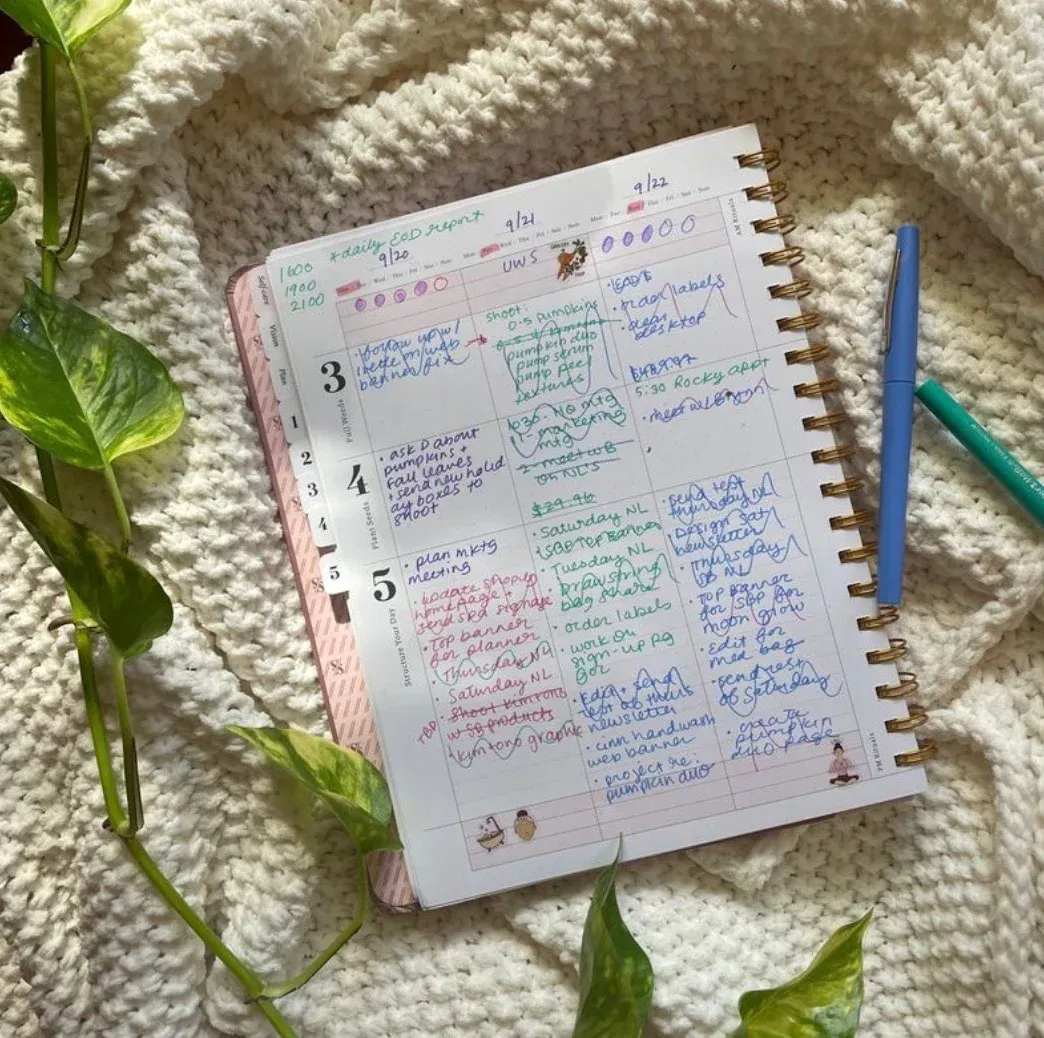 *daily EOD report
1600
1900
2100
9/20
9/21
9/22
Mon Tue Wed Thu Fri Sat Sun
Mon Tue Wed Thu Fri Sat Sun
Mon Tue Wed Thu Fri Sat Sun
AM Rituals
Self Care
Vision
Plan
1
2
3
4
5
3
4
Plant Seeds
5
Structure Your Day
PM Rituals
• follow up w/
banner fix
• ask D about
pumpkins +
fall leaves
+ send new holid
ay boxes to
shoot
• plan mktg
meeting
update
homepage +
send
signage
• Top banner
for planner
• Thursday NL
• Saturday NL
• shoot kimtono
products
TBD
• kimtono graphic
UWS
shoot:
0.5 pumpkins
pumpkin duo
pump serum
pump peel
textures
mtg
marketing
mtg
2 - meet w B
on NL's
$29.96
• Saturday NL
TOP Banner
• Tuesday NL
• draw string
bag share
• order labels
• work on
sign-up pg
for
• Edit + send
test of thurs
newsletter
handwash
web banner
• project re:
pumpkin duo
labels
• clean
desktop
5:30 Rocky appt
• meet w/
• send test
thursday NL
• Design Sat
newsletter
• Thursday
NL
• TOP Banner
for SBP for
moon glow
• Edit for
med bag
• send
of Saturday
• create
pumpkin
duo page